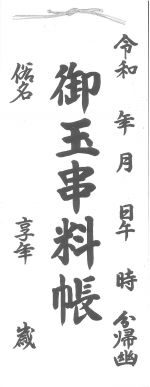 令和 年 月 日午 時 分帰幽
御玉串料帳
俗名 享年 歳